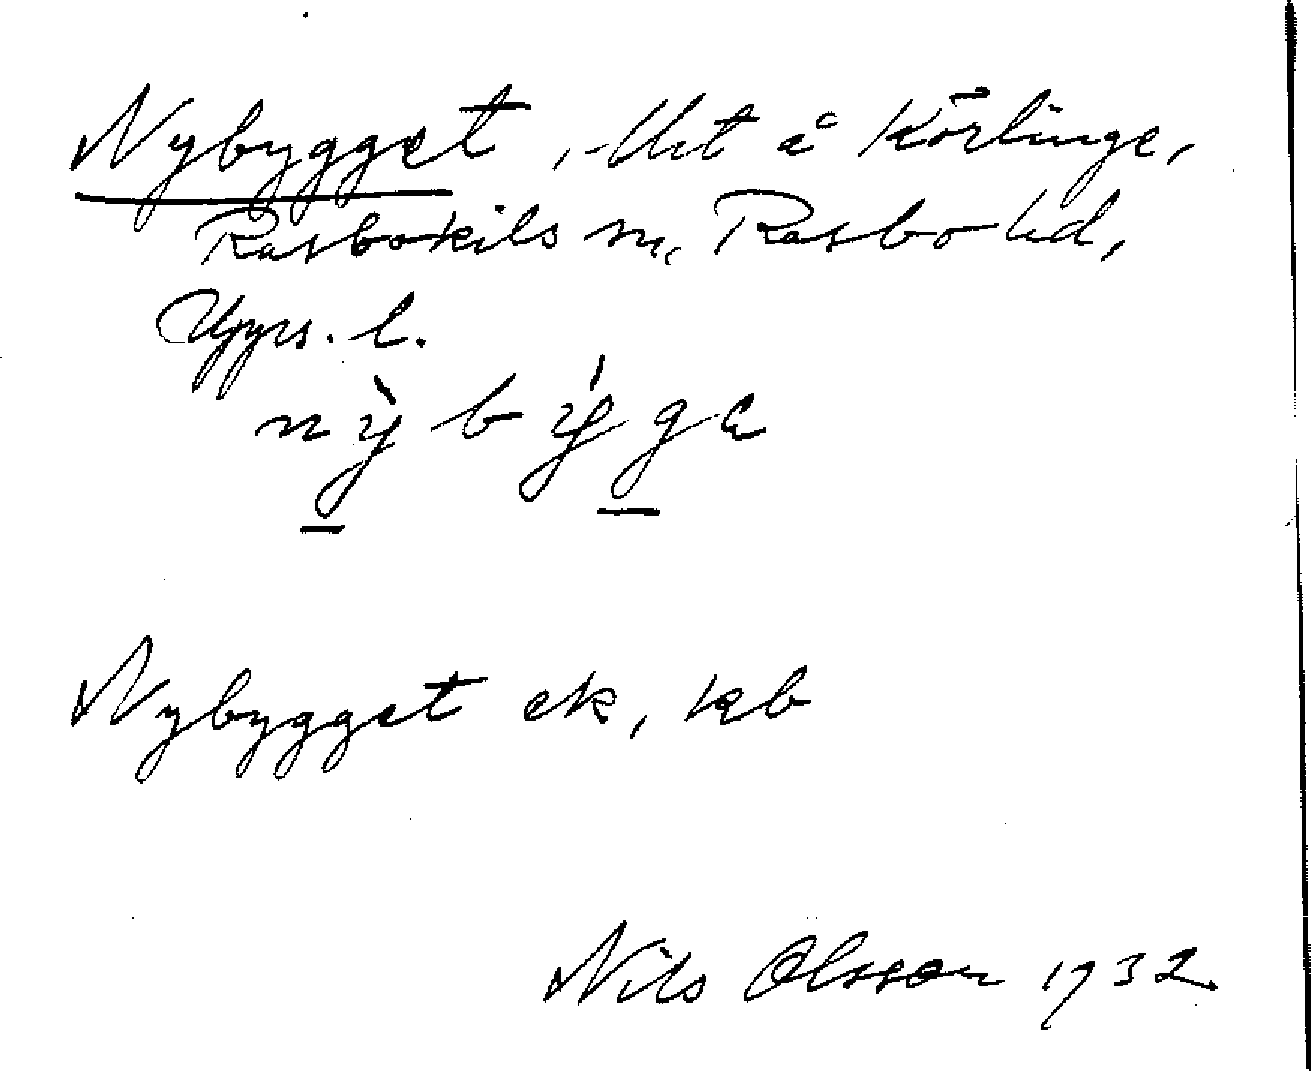 Nybygget, -lht å Körlinge,
Rasbokils sn, Rasbo hd,
Upps. l.
nỳbýge
Nybygget ek, kb
Nils Olsson 1932